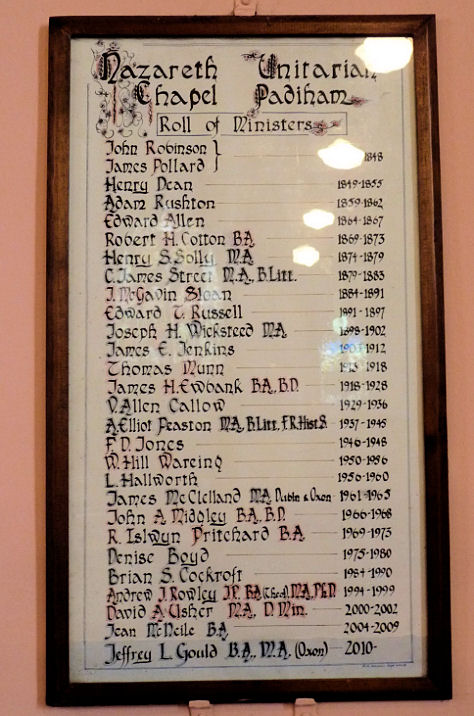 Nazareth Unitarian
Chapel Padiham
Roll of Ministers
John Robinson }
James Pollard } 1848
Henry Dean 1849-1855
Adam Rushton 1859-1862
Edward Allen 1864-1867
Robert H. Cotton B.A. 1869-1873
Henry S. Solly. M.A. 1874-1879
C. James Street M.A., B.Litt. 1879-1883
J. McGavin Sloan 1884-1891
Edward T. Russell 1891-1897
Joseph H. Wicksteed M.A. 1898-1902
James E. Jenkins 1912
Thomas Munn 1918
James H. Ewbank B.A., B.D. 1918-1928
V. Allen Callow 1929-1936
A. Elliot Peaston M.A., B.Litt., F.R.Hist.S. 1937-1945
F. D. Jones 1946-1948
W. Hill Wareing 1950-1956
L. Hallworth 1956-1960
James McClelland M.A. Dublin & Oxon 1961-1965
John A. Midgley B.A., B.D. 1966-1968
R. Islwyn Pritchard B.A. 1969-1973
Denise Boyd 1975-1980
Brian S. Cockroft 1984-1990
Andrew J. Rowley J.P. B.A. (Theol), M.A., Ph.D. 1994-1999
David A. Usher M.A. D. Min. 2000-2002
Jean McNeile B.A. 2004-2009
Jeffrey L. Gould B.A., M.A. (Oxon) 2010-